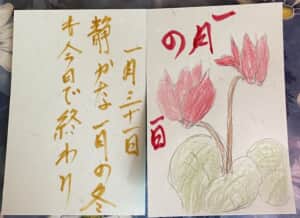 一月
の
一日
一月三十一日
静かな一月の冬
も今日で終わり